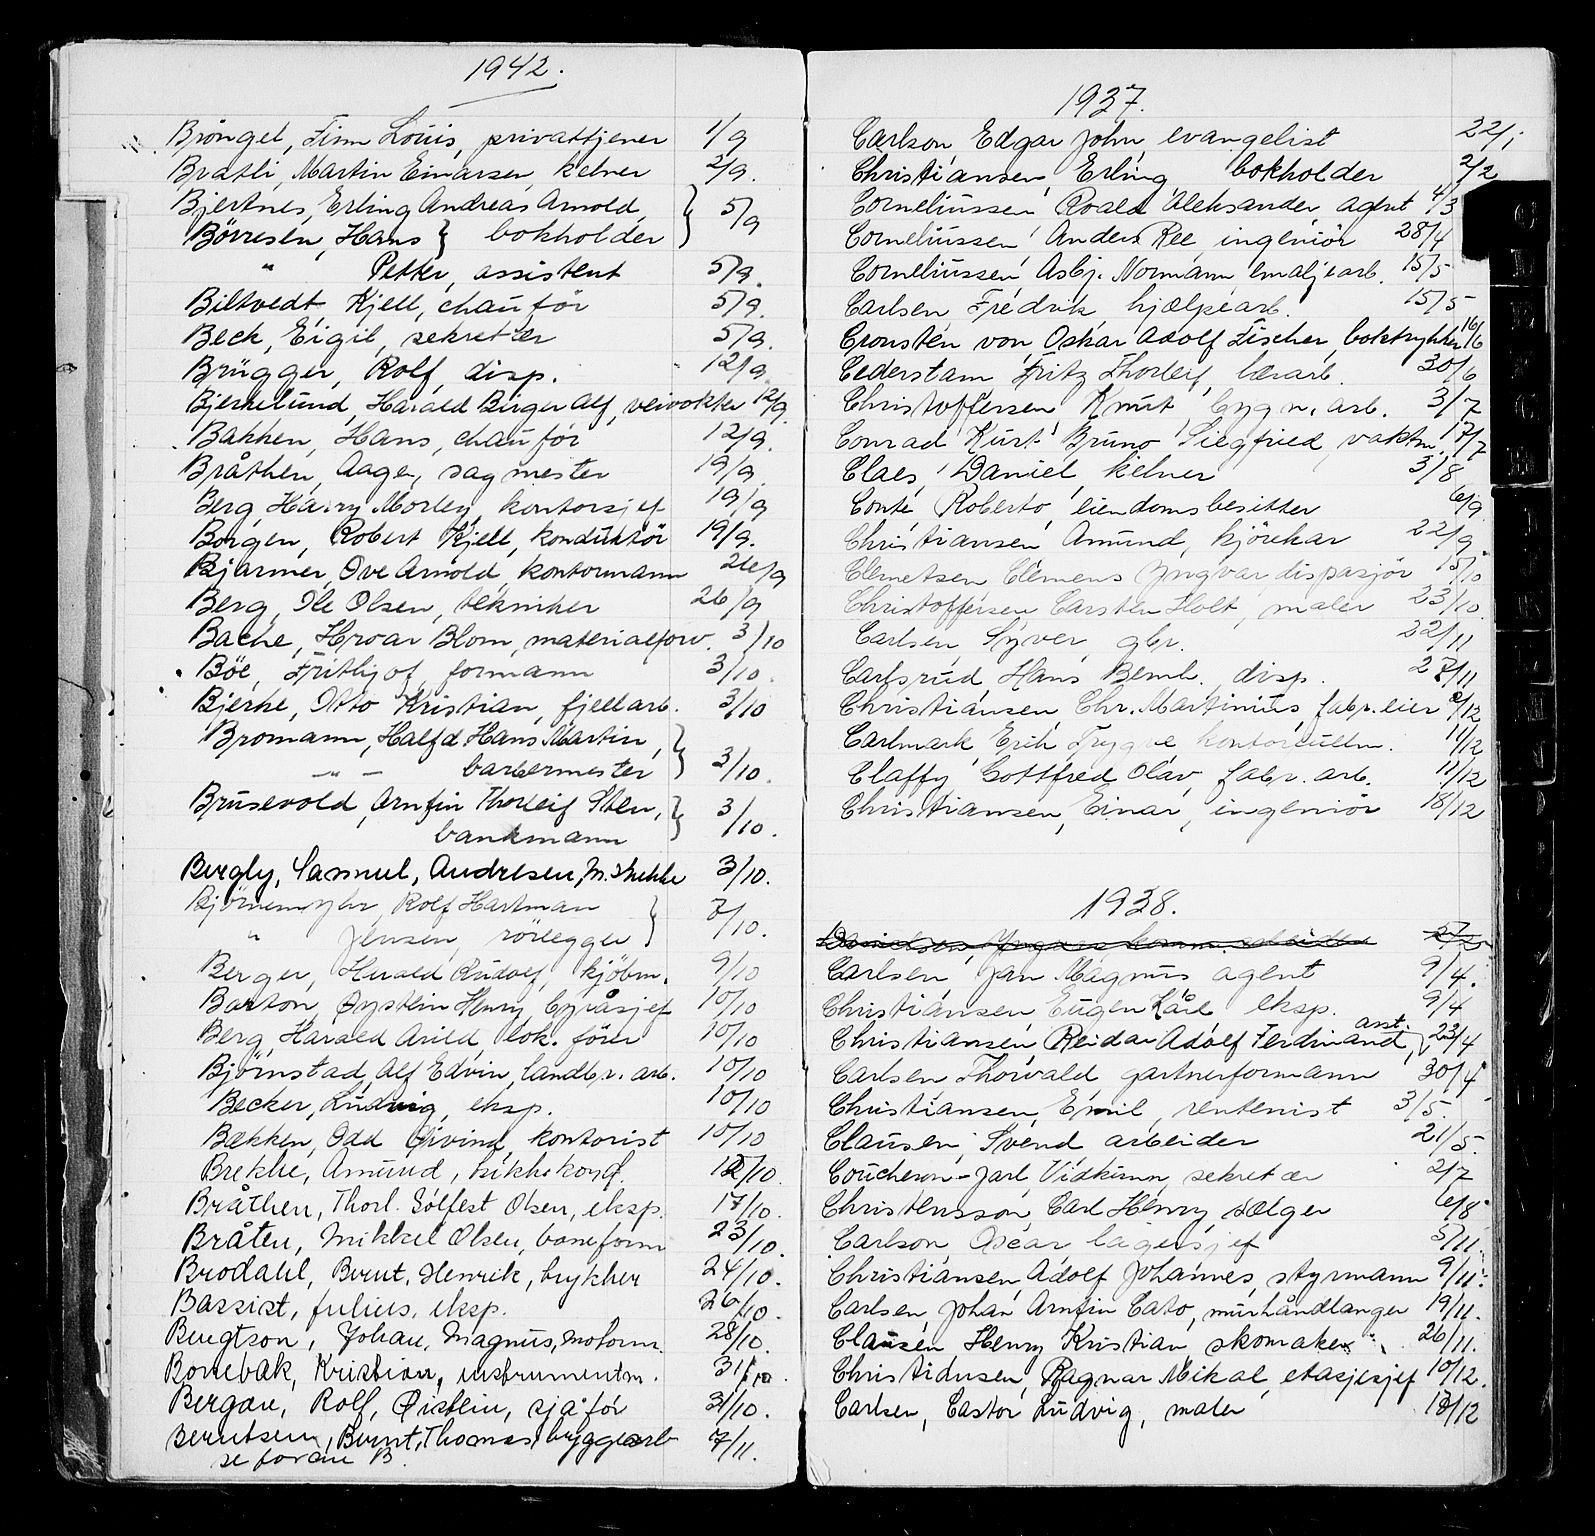 1942.
Bjöngel, Finn Louis, privattjener 1/9
Bratli, Martin Einarsen, kelner 2/9.
Bjertnes, Erling Andreas Arnold, } 5/9
Börresen, Hans } bokholder
" Petter, assistent 5/9.
Biltvedt, Kjell, chauför 5/9.
Beck, Eigil, sekretær 5/9.
Brügger, Rolf, disp. 12/9
Bjerkelund, Harald Birger Alf, veivokter 12/9.
Bakken, Hans, chauför 12/9.
Bråthen, Aage, sagmester 19/9.
Berg, Harry Morley, kontorsjef 19/9
Borgen, Robert Kjell, konduktör 19/9.
Bjarmer, Ove Arnold, kontormann 26/9
Berg, Ole Olsen, tekniker 26/9
Bache, Hroar Blom, materialforv. 3/10
Böe, Frithjof, formann 3/10.
Bjerke, Otto Kristian, fjellarb. 3/10
Bromann, Halfd Hans Martin, }
— " — barbermester } 3/10.
Brusevold, Arnfin Thorleif Sten, } 3/10.
bankmann
Bergly, Samuel, Andresen, 3/10.
Rolf Hartman } 7/10.
" Jensen, rörlegger
Berger, Harald Rudolf, kjöbm. 9/10
Barton, Øystein Henry, byråsjef 10/10
Berg, Harald Arild, lok. förer 10/10
Björnstad, Alf Edvin, landbr. arb. 10/10
Becker, Ludvig, eksp. 10/10
Bækken, Odd Øivind, kontorist 10/10
Brekke, Amund, /10.
Bråthen, Thorl. Solfest Olsen, eksp. 17/10.
Bråten, Mikkel Olsen, baneform 23/10.
Brodahl, Bernt, Henrik, trykker 24/10.
Bassist, Julius, eksp. 26/10.
Bengtson, Johan, Magnus, motorm. 28/10.
Bonebak, Kristian, instrumentm. 31/10.
Bergan, Rolf, Øistein, sjåför 31/10.
Berntsen, Bernt, Thomas, byggearb 7/11.
se foran B.
1937.
Carlson, Edgar John, evangelist 22/1
Christiansen, Erling bokholder 2/2
Corneliussen, Roald Aleksander, agent 4/3
Corneliussen, Anders Ree ingeniör 28/4
Corneliussen, Asbj. Normann emaljearb. 15/5
Carlsen Fredrik hjælpearb. 15/5
Cronstén von, Oskar Adolf Fischer, boktrykker 16/6
Cederstam Fritz Thorleif, lærarb. 30/6
Christoffersen Knut bygn. arb. 3/7
Conrad Kurt Bruno Siegfried, vaktm. 17/7
Claes, Daniel, kelner 3/8
Conte Roberto eiendomsbesitter 6/9
Christiansen Amund, kjörekar 22/9
Clemetsen Clemens Yngvar dispasjör 15/10
Christoffersen Carsten Holt, maler 23/10.
Carlsen, Syver, gbr. 22/11
Carlsrud, Hans Bernh. disp. 27/11
Christiansen, Chr. Martinius, fabr.eier 2/12
Carlmark Erik Trygve kontorfullm. 11/12
Claffy, Gottfred Olav, fabr. arb. 11/12
Christiansen, Einar, ingeniör 18/12
1938.
Carlsen Jan Magnus agent 9/4.
Christiansen, Eugen Kåre eksp. 9/4
Christiansen, Reidar Adolf Ferdinand, asst. 23/4
Carlsen Thorvald gartnerformann 30/4
Christiansen, Emil, rentenist 3/5.
Clausen, Svend arbeider 21/5.
Coucheron-Jarl Vidkunn, sekretær 2/7
Christensson, Carl Henry, sælger 6/8
Carlson, Oscar, lagersjef 5/11.
Christiansen, Adolf Johannes, styrmann 9/11.
Carlsen, Johan Arnfin Cato, murhåndlanger 19/11.
Clausen Henry Kristian skomaker 26/11.
Christiansen, Ragnar Mikal, etasjesjef 10/12.
Carlsen, Castor Ludvig, maler /12